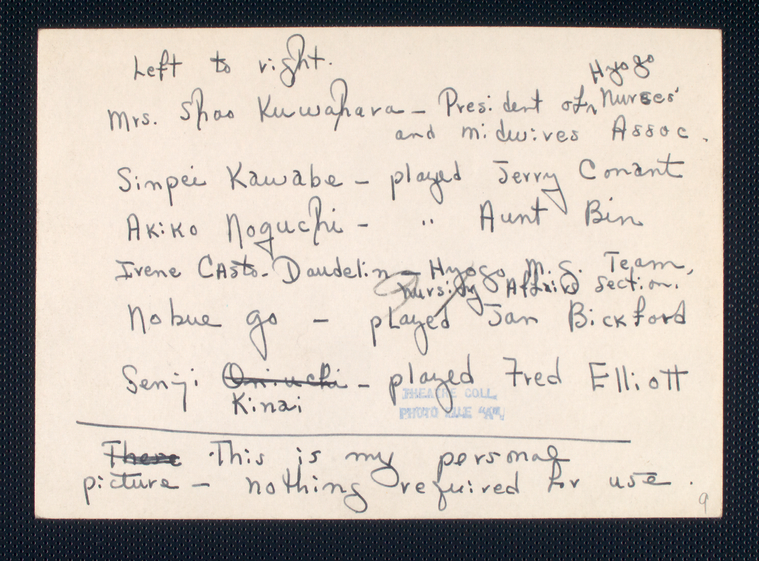 Left to right.
Hyogo
Mrs. Shao Kuwahara – President of Nurses'
and midwives Assoc.
Sinpei Kawabe – played Jerry Conant
Akiko Noguchi – " Aunt Bin
Irene Casto-Daudelin – Hyogo M.G. Team,
nursing Affairs Section.
Nobue go – played Jan Bickford
Senji Oniuchi – played Fred Elliott
Kinai
THEATRE COLL.
PHOTO FILE "A"
There This is my personal
picture – nothing required for use.
9